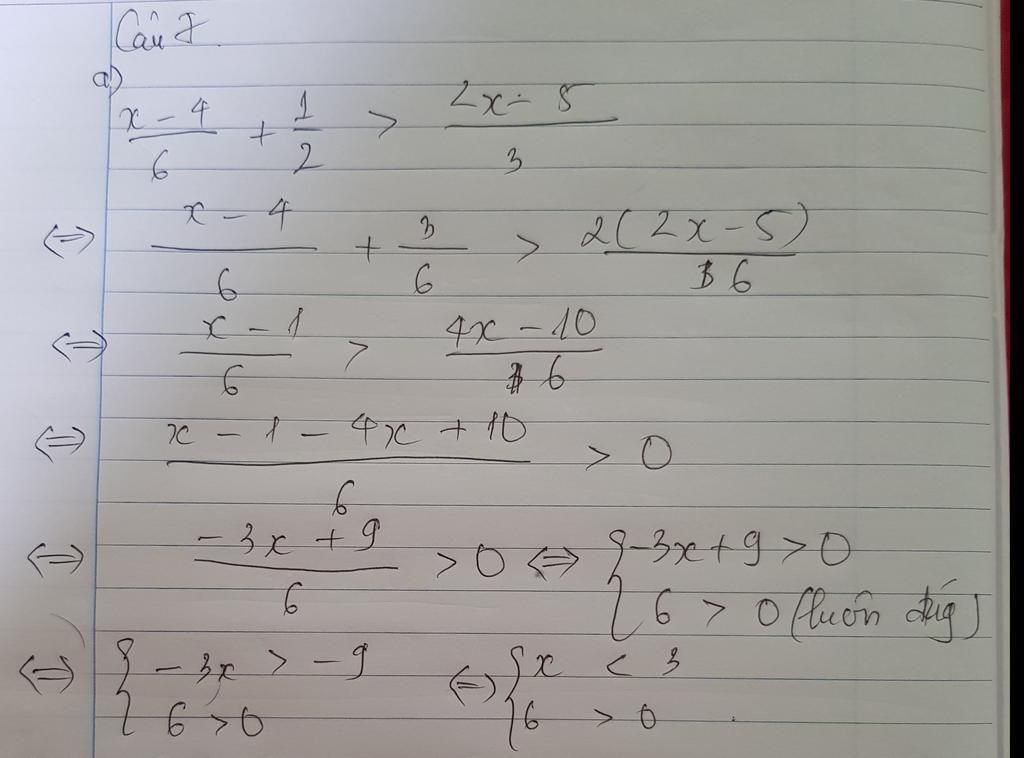 Câu 7.
a)
(x - 4)/6 + 1/2 > (2x - 5)/3
⇔ (x - 4)/6 + 3/6 > 2(2x - 5)/6
⇔ (x - 1)/6 > (4x - 10)/6
⇔ (x - 1 - 4x + 10)/6 > 0
⇔ (-3x + 9)/6 > 0 ⇔ { -3x + 9 > 0
6 > 0 (luôn đúg)
⇔ { -3x > -9 ⇔ { x < 3
6 > 0 6 > 0 .